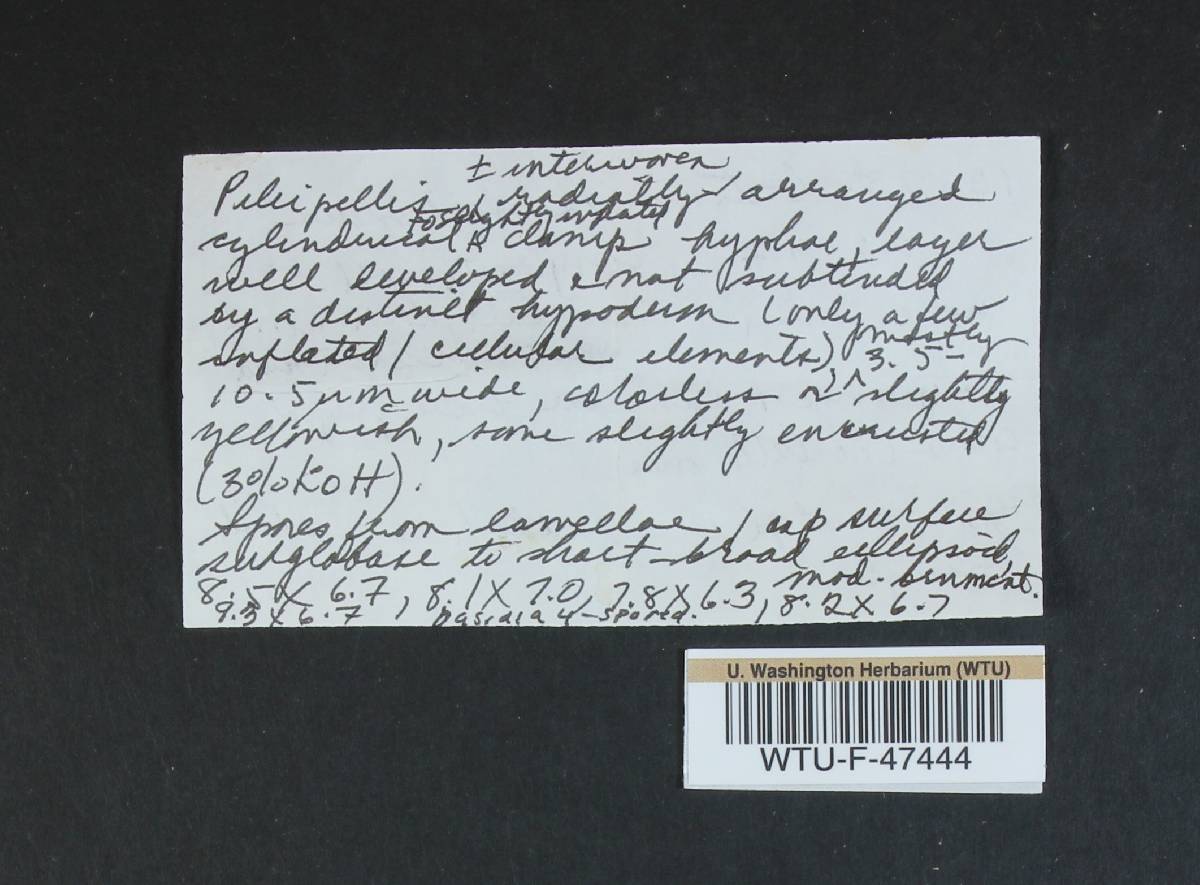 ± interwoven
Pileipellis of radially arranged
to slightly inflated
cylindrical & clamp hyphae, layer
well developed & not subtended
by a distinct hypoderm (only a few
inflated / cellular elements), mostly
3.5-
10.5 µm wide, colorless or slightly
yellowish, some slightly encrusted
(3% KOH).
Spores from lamellae / cap surface
subglobose to short-broad ellipsoid,
mod. ornament.
8.5 X 6.7, 8.1 X 7.0, 7.8 X 6.3, 8.2 X 6.7
9.3 X 6.7 basidia 4-spored.
U. Washington Herbarium (WTU)
WTU-F-47444